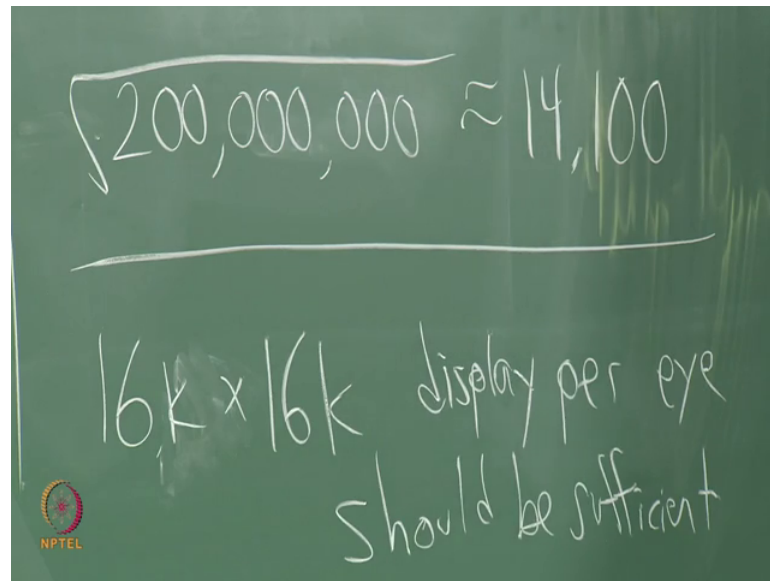 √200,000,000 ≈ 14,100
16k × 16k display per eye
should be sufficient
NPTEL